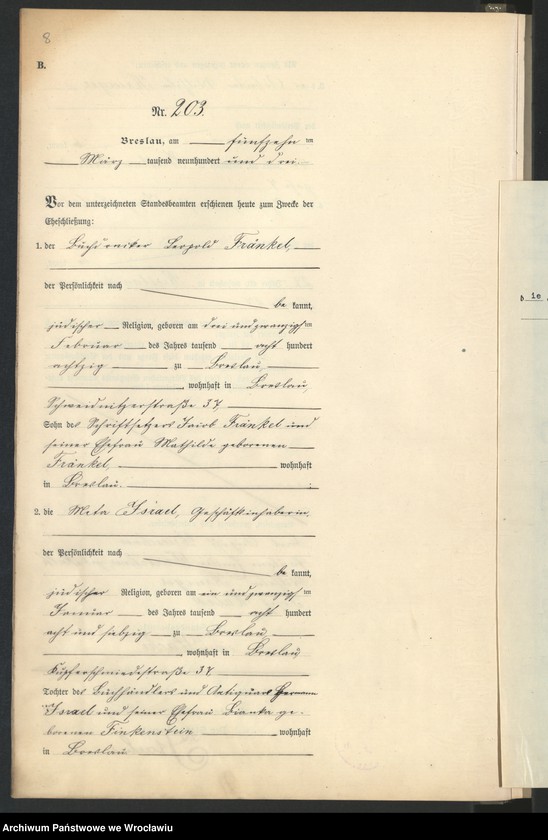 8
B.
Nr. 203.
Breslau, am fünfzehnten
März tausend neunhundert und drei
Vor dem unterzeichneten Standesbeamten erschienen heute zum Zwecke der
Eheschließung:
1. der Buchdrucker Leopold Fränkel,
der Persönlichkeit nach
be kannt,
jüdischer Religion, geboren am drei und zwanzigsten
Februar des Jahres tausend acht hundert
achtzig zu Breslau,
, wohnhaft in Breslau,
Schweidnitzerstraße 37,
Sohn des Schriftsetzers Jacob Fränkel und
seiner Ehefrau Mathilde geborenen
Fränkel, wohnhaft
in Breslau.
2. die Meta Israel, Geschäftsinhaberin
der Persönlichkeit nach
be kannt,
jüdischer Religion, geboren am ein und zwanzigsten
Januar des Jahres tausend acht hundert
acht und siebzig zu Breslau
, wohnhaft in Breslau
Kupferschmiedestraße 37
Tochter des Buchhändlers und Antiquars Hermann
Israel und seiner Ehefrau Bianka ge-
borenen Finkenstein wohnhaft
in Breslau.
Archiwum Państwowe we Wrocławiu